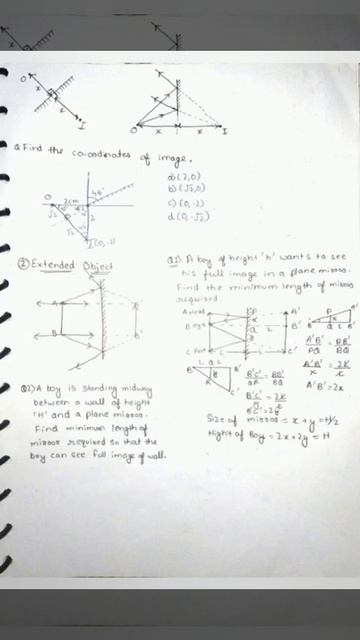 O
x
x
I
O
x
x
I
Q. Find the co-ordinates of image.
a) (2,0)
b) (√2,0)
c) (0,-2)
d) (0,-√2)
O
2cm
45°
√2
√2
2
I(0,-2)
② Extended Object
A
B
B'
Q1) A boy of height 'h' wants to see
his full image in a plane mirror.
Find the minimum length of mirror
required.
A Head
B eye
C Foot
P
x
Q
y
R
L
L
A'
B'
C'
P
A'
B
L
Q
L
B'
A'B'/PQ = BB'/BQ
A'B'/x = 2L/L
A'B' = 2x
B
L
Q
L
B'
R
C'
B'C'/QR = BB'/BQ
B'C'/y = 2L/L
B'C' = 2y
Size of mirror = x + y = H/2
Hight of Boy = 2x + 2y = H
Q2) A boy is standing midway
between a wall of height
'H' and a plane mirror.
Find minimum length of
mirror required so that the
boy can see full image of wall.